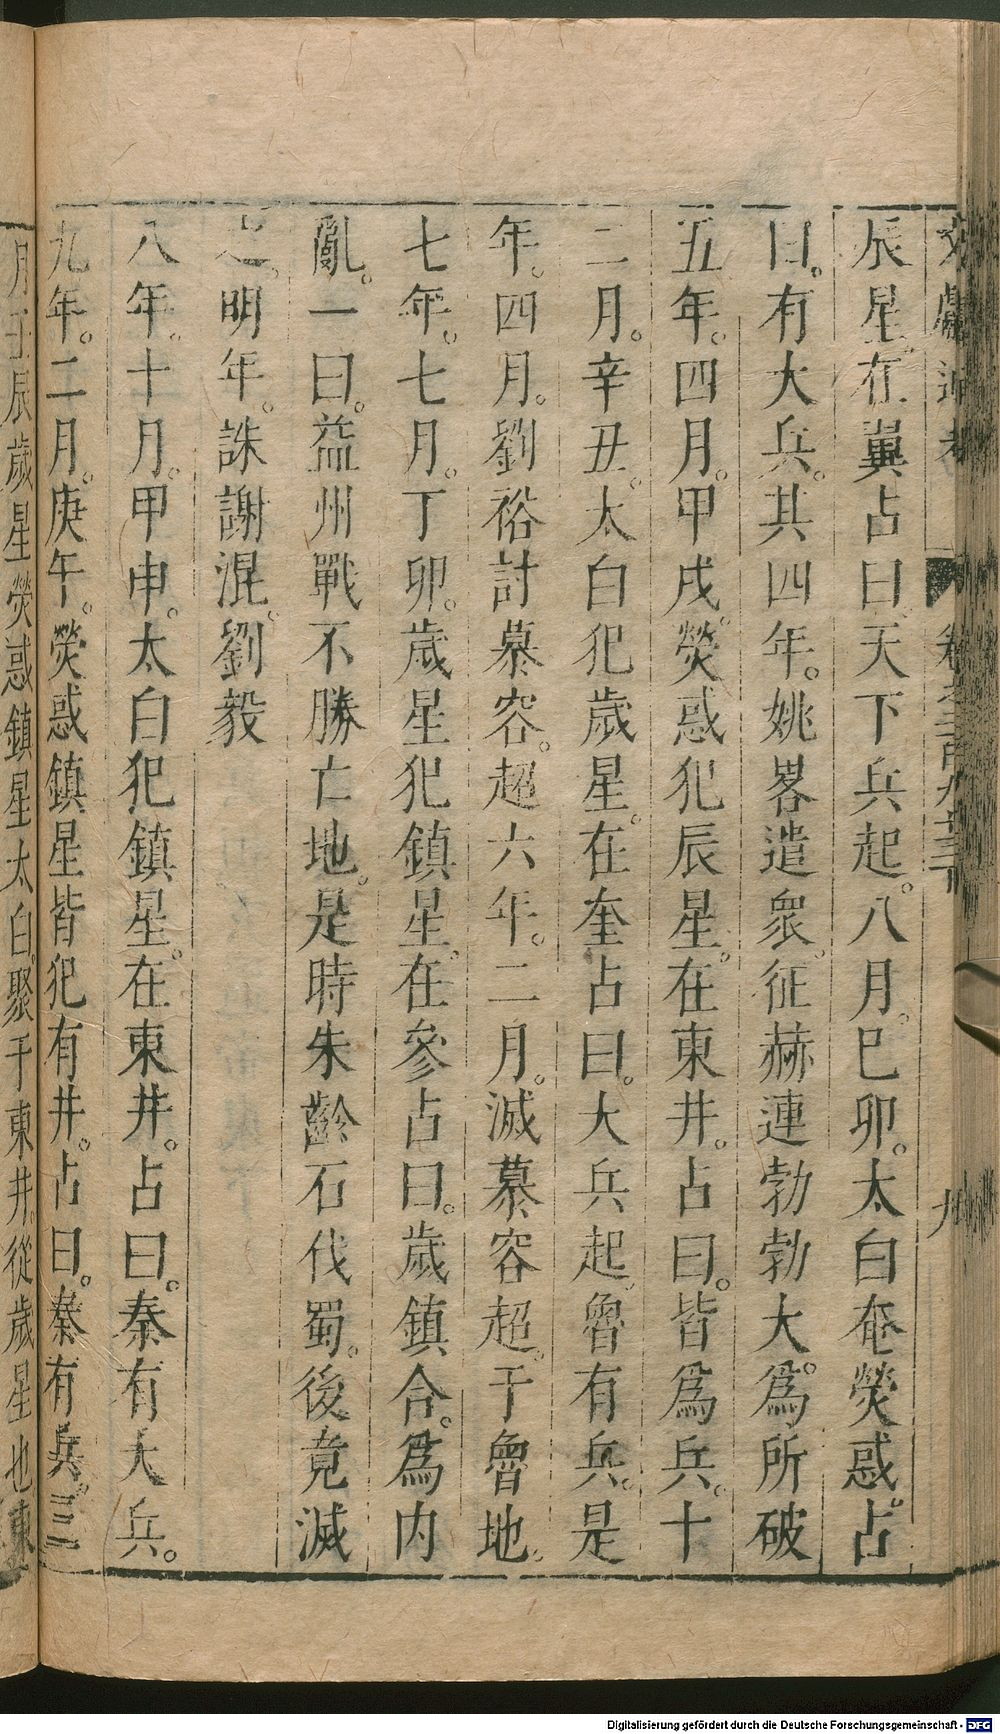 文獻通考 卷之二百九十三下 九
辰星。在軫占曰。天下兵起。八月。巳卯。太白奄熒惑。占
曰。有大兵。其四年。姚畧遣衆。征赫連勃勃。大爲所破
五年。四月。甲戌。熒惑犯辰星。在東井。占曰。皆爲兵。十
二月。辛丑。太白犯歲星。在奎占曰。大兵起。魯有兵。是
年。四月。劉裕討慕容。超六年。二月。滅慕容超。于魯地。
七年。七月。丁卯。歲星犯鎮星。在參占曰。歲鎮合。爲内
亂。一曰。益州戰不勝亡地。是時朱齡石伐蜀。後竟滅
之。明年。誅謝混。劉毅
八年。十月。甲申。太白犯鎮星。在東井。占曰。秦有大兵。
九年。二月。庚午。熒惑鎮星皆犯有井。占曰。秦有兵。三
月壬辰歲星熒惑鎮星太白。聚于東井。從歲星也東
Digitalisierung gefördert durch die Deutsche Forschungsgemeinschaft - DFG